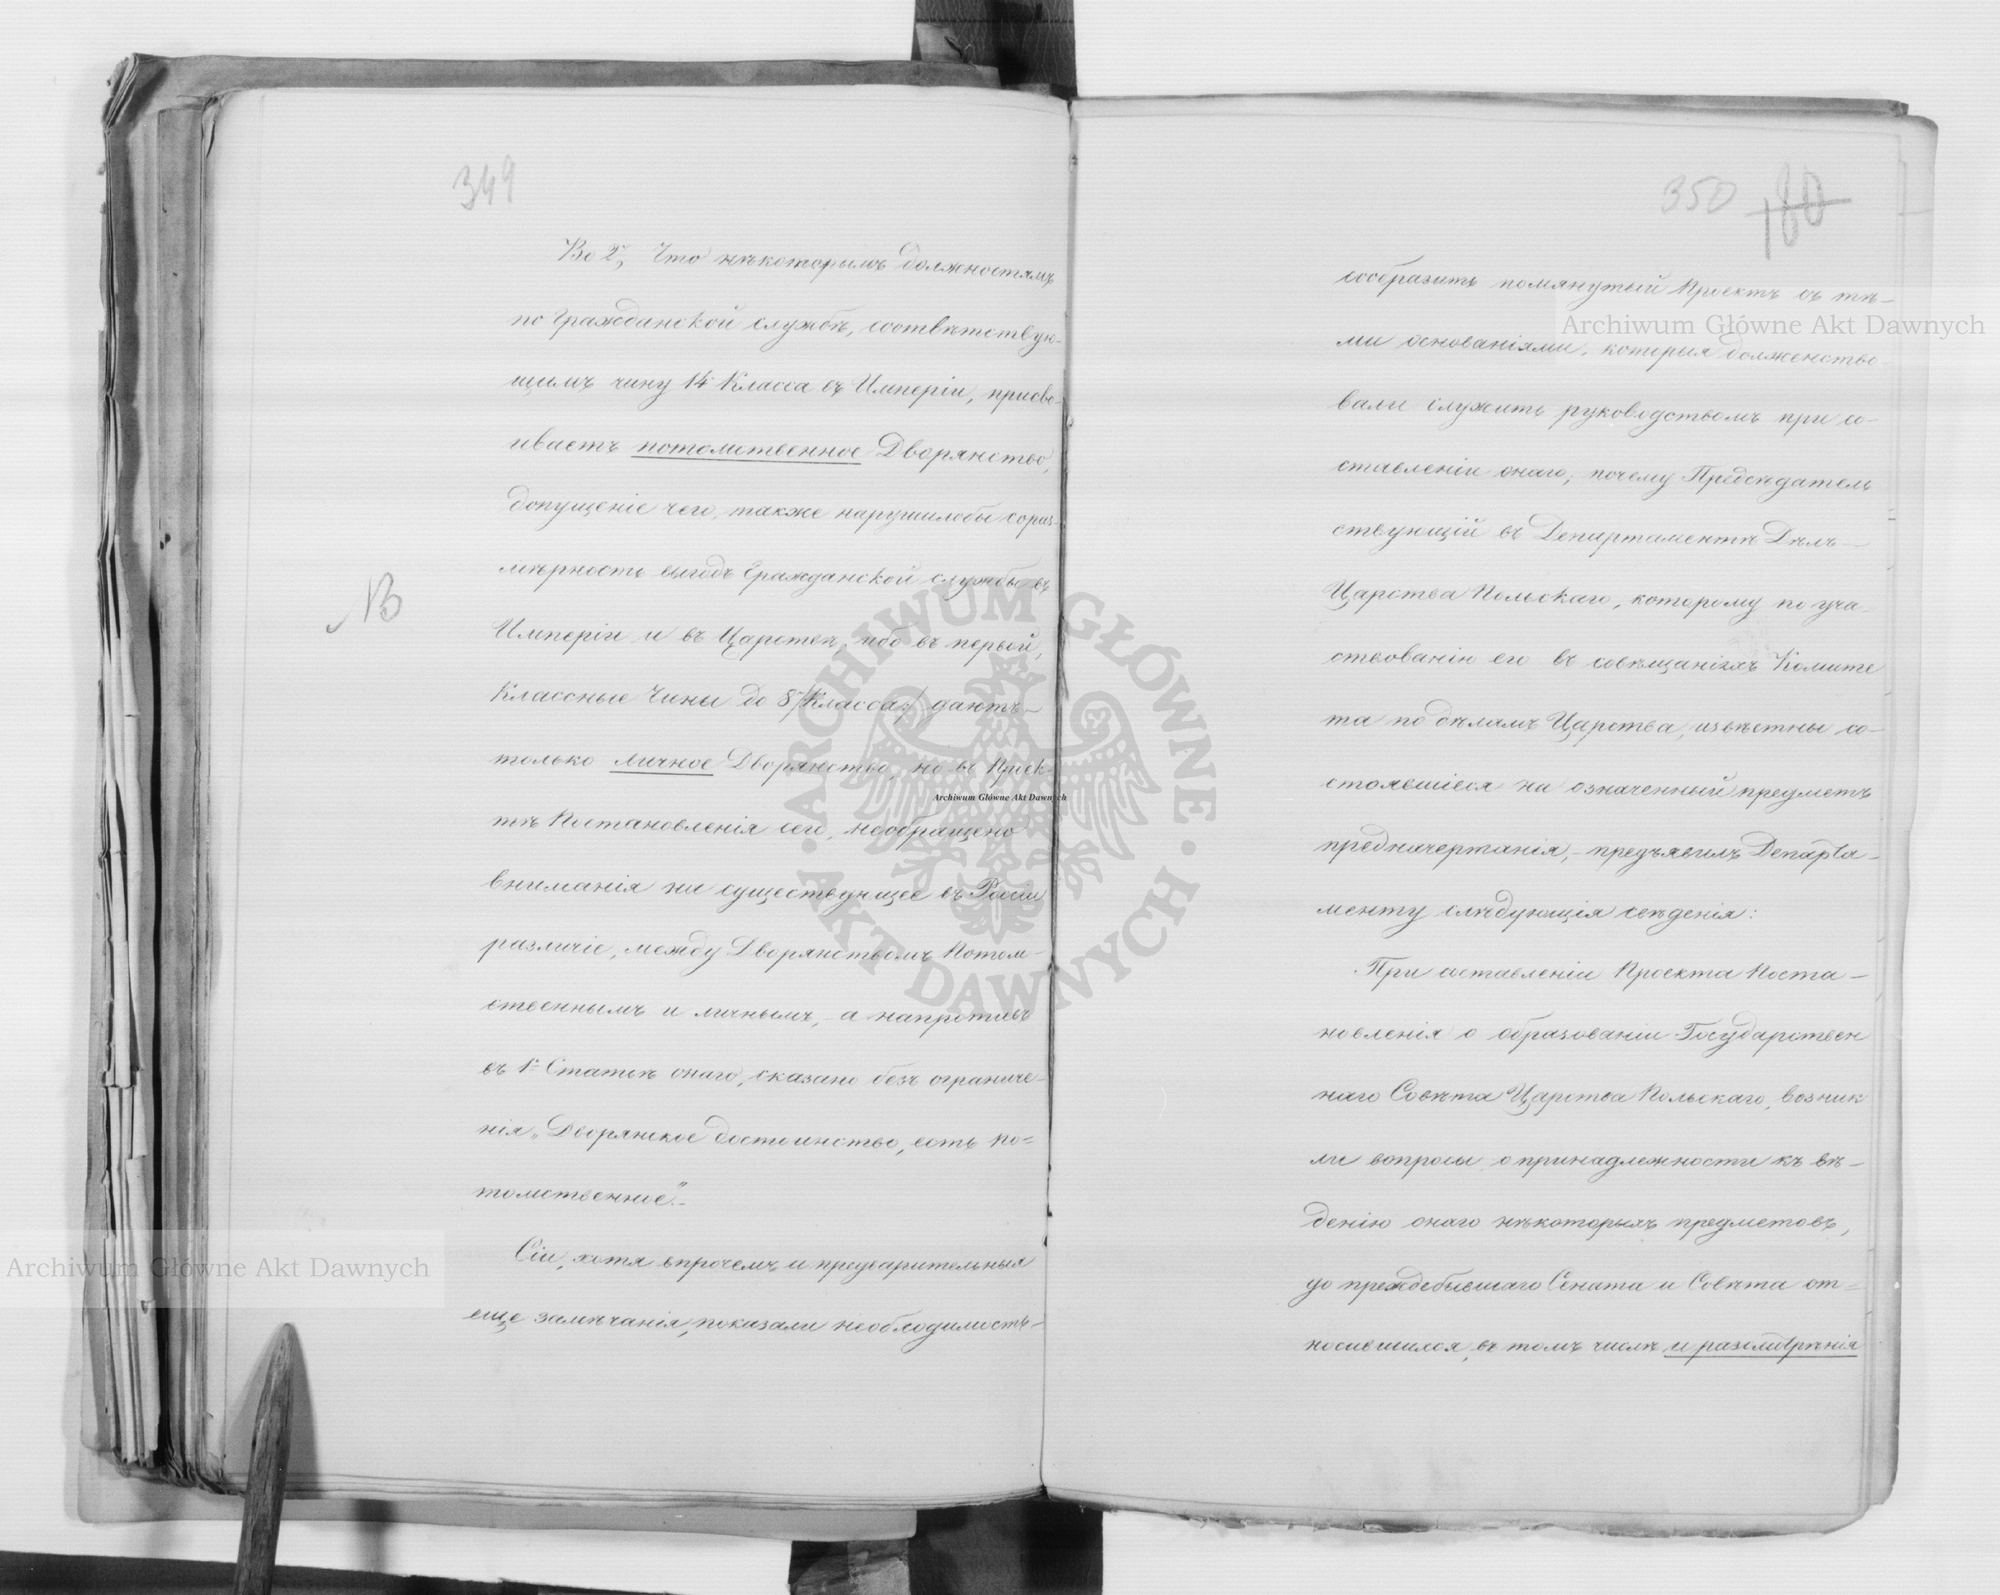 349
Во 2х, Что нѣкоторымъ должностямъ
по Гражданской службѣ, соотвѣтствую-
щимъ чину 14 Класса въ Имперіи, присво-
иваетъ потомственное Дворянство,
допущеніе чего, также нарушилобы сораз-
мѣрность выгодъ Гражданской службы въ
NB
Имперіи и въ Царствѣ, ибо въ первой,
Классные Чины до 8/Класса/ даютъ
только личное Дворянство, но въ Проек-
тѣ Постановленія сего, необращено
вниманія на существующее въ Россіи
различіе, между Дворянствомъ Потом-
ственнымъ и личнымъ, а напротивъ
въ 1й Статьѣ онаго, сказано безъ ограниче-
нія „Дворянское достоинство, есть по=
томственное".
Сіи, хотя впрочемъ и предварительныя
еще замѣчанія, показали необходимость
350 180
сообразить помянутый Проектъ съ тѣ-
ми основаніями, которыя долженство-
вали служить руководствомъ при со-
ставленіи онаго; почему Предсѣдатель
ствующій въ Департаментѣ Дѣлъ
Царства Польскаго, которому по уча-
ствованію его въ совѣщаніяхъ Комите
та по дѣламъ Царства, извѣстны со-
стоявшіеся на означенный предметъ
предначертанія, - предъявилъ Департа-
менту слѣдующія свѣденія:
При составленіи Проекта Поста-
новленія о образованіи Государствен
наго Совѣта Царства Польскаго, возник
ли вопросы о принадлежности къ вѣ-
денію онаго нѣкоторыхъ предметовъ,
до преждебывшаго Сената и Совѣта от=
носившихся, въ томъ числѣ и разсмотрѣнія
Archiwum Główne Akt Dawnych
Archiwum Główne Akt Dawnych
Archiwum Główne Akt Dawnych
ARCHIWUM GŁÓWNE AKT DAWNYCH